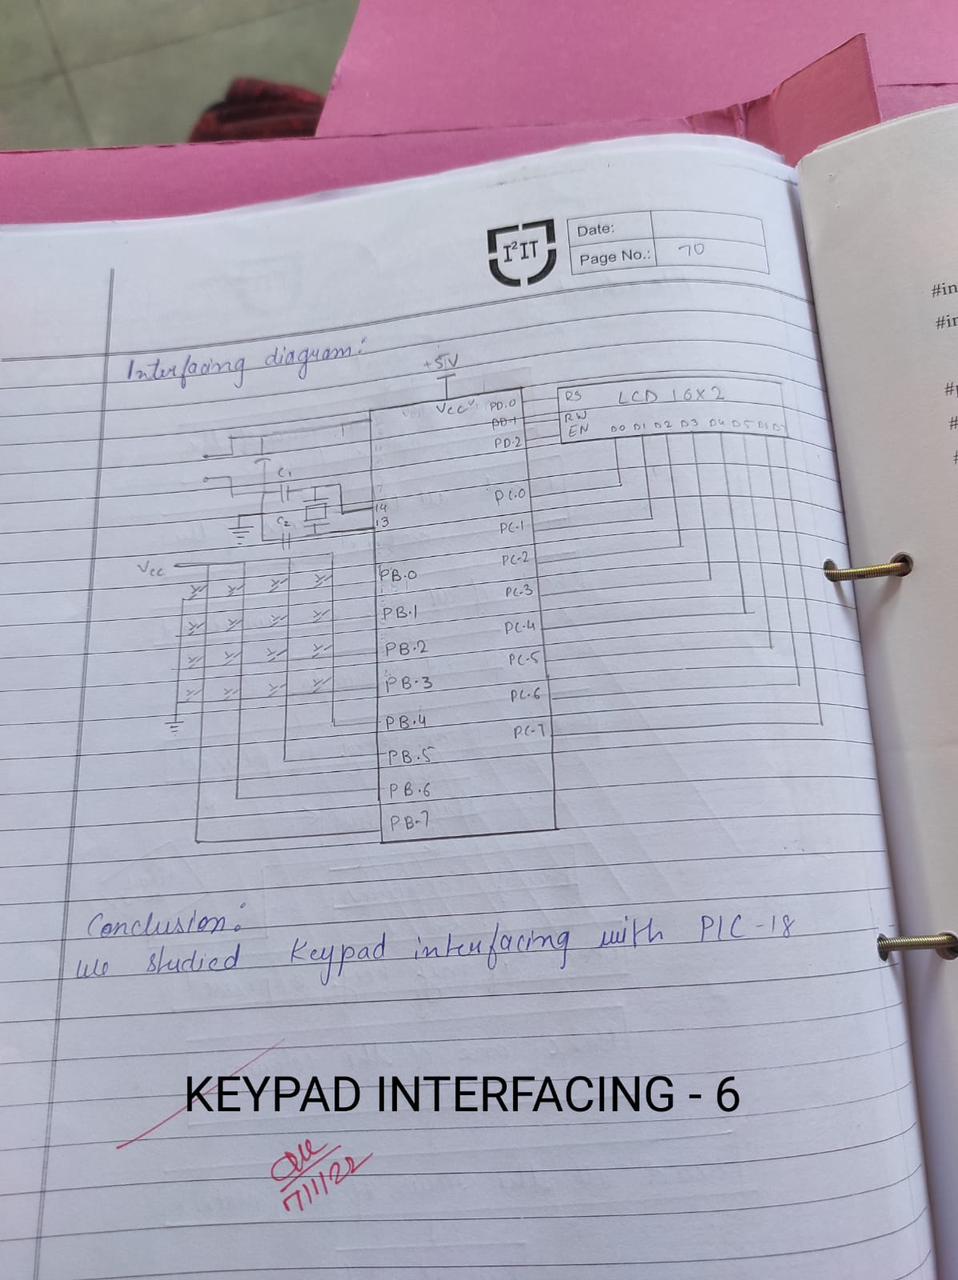 I²IT
Date:
Page No.: 70
#in
#in
Interfacing diagram:
+5V
Vcc
PD.0
PD.1
PD.2
RS
RW
EN
LCD 16X2
D0 D1 D2 D3 D4 D5 D6 D7
C1
C2
14
13
Vcc
PB.0
PB.1
PB.2
PB.3
PB.4
PB.5
PB.6
PB-7
PC.0
PC-1
PC-2
PC-3
PC-4
PC-5
PC-6
PC-7
Conclusion:
We studied Keypad interfacing with PIC-18
KEYPAD INTERFACING - 6
7/1/22